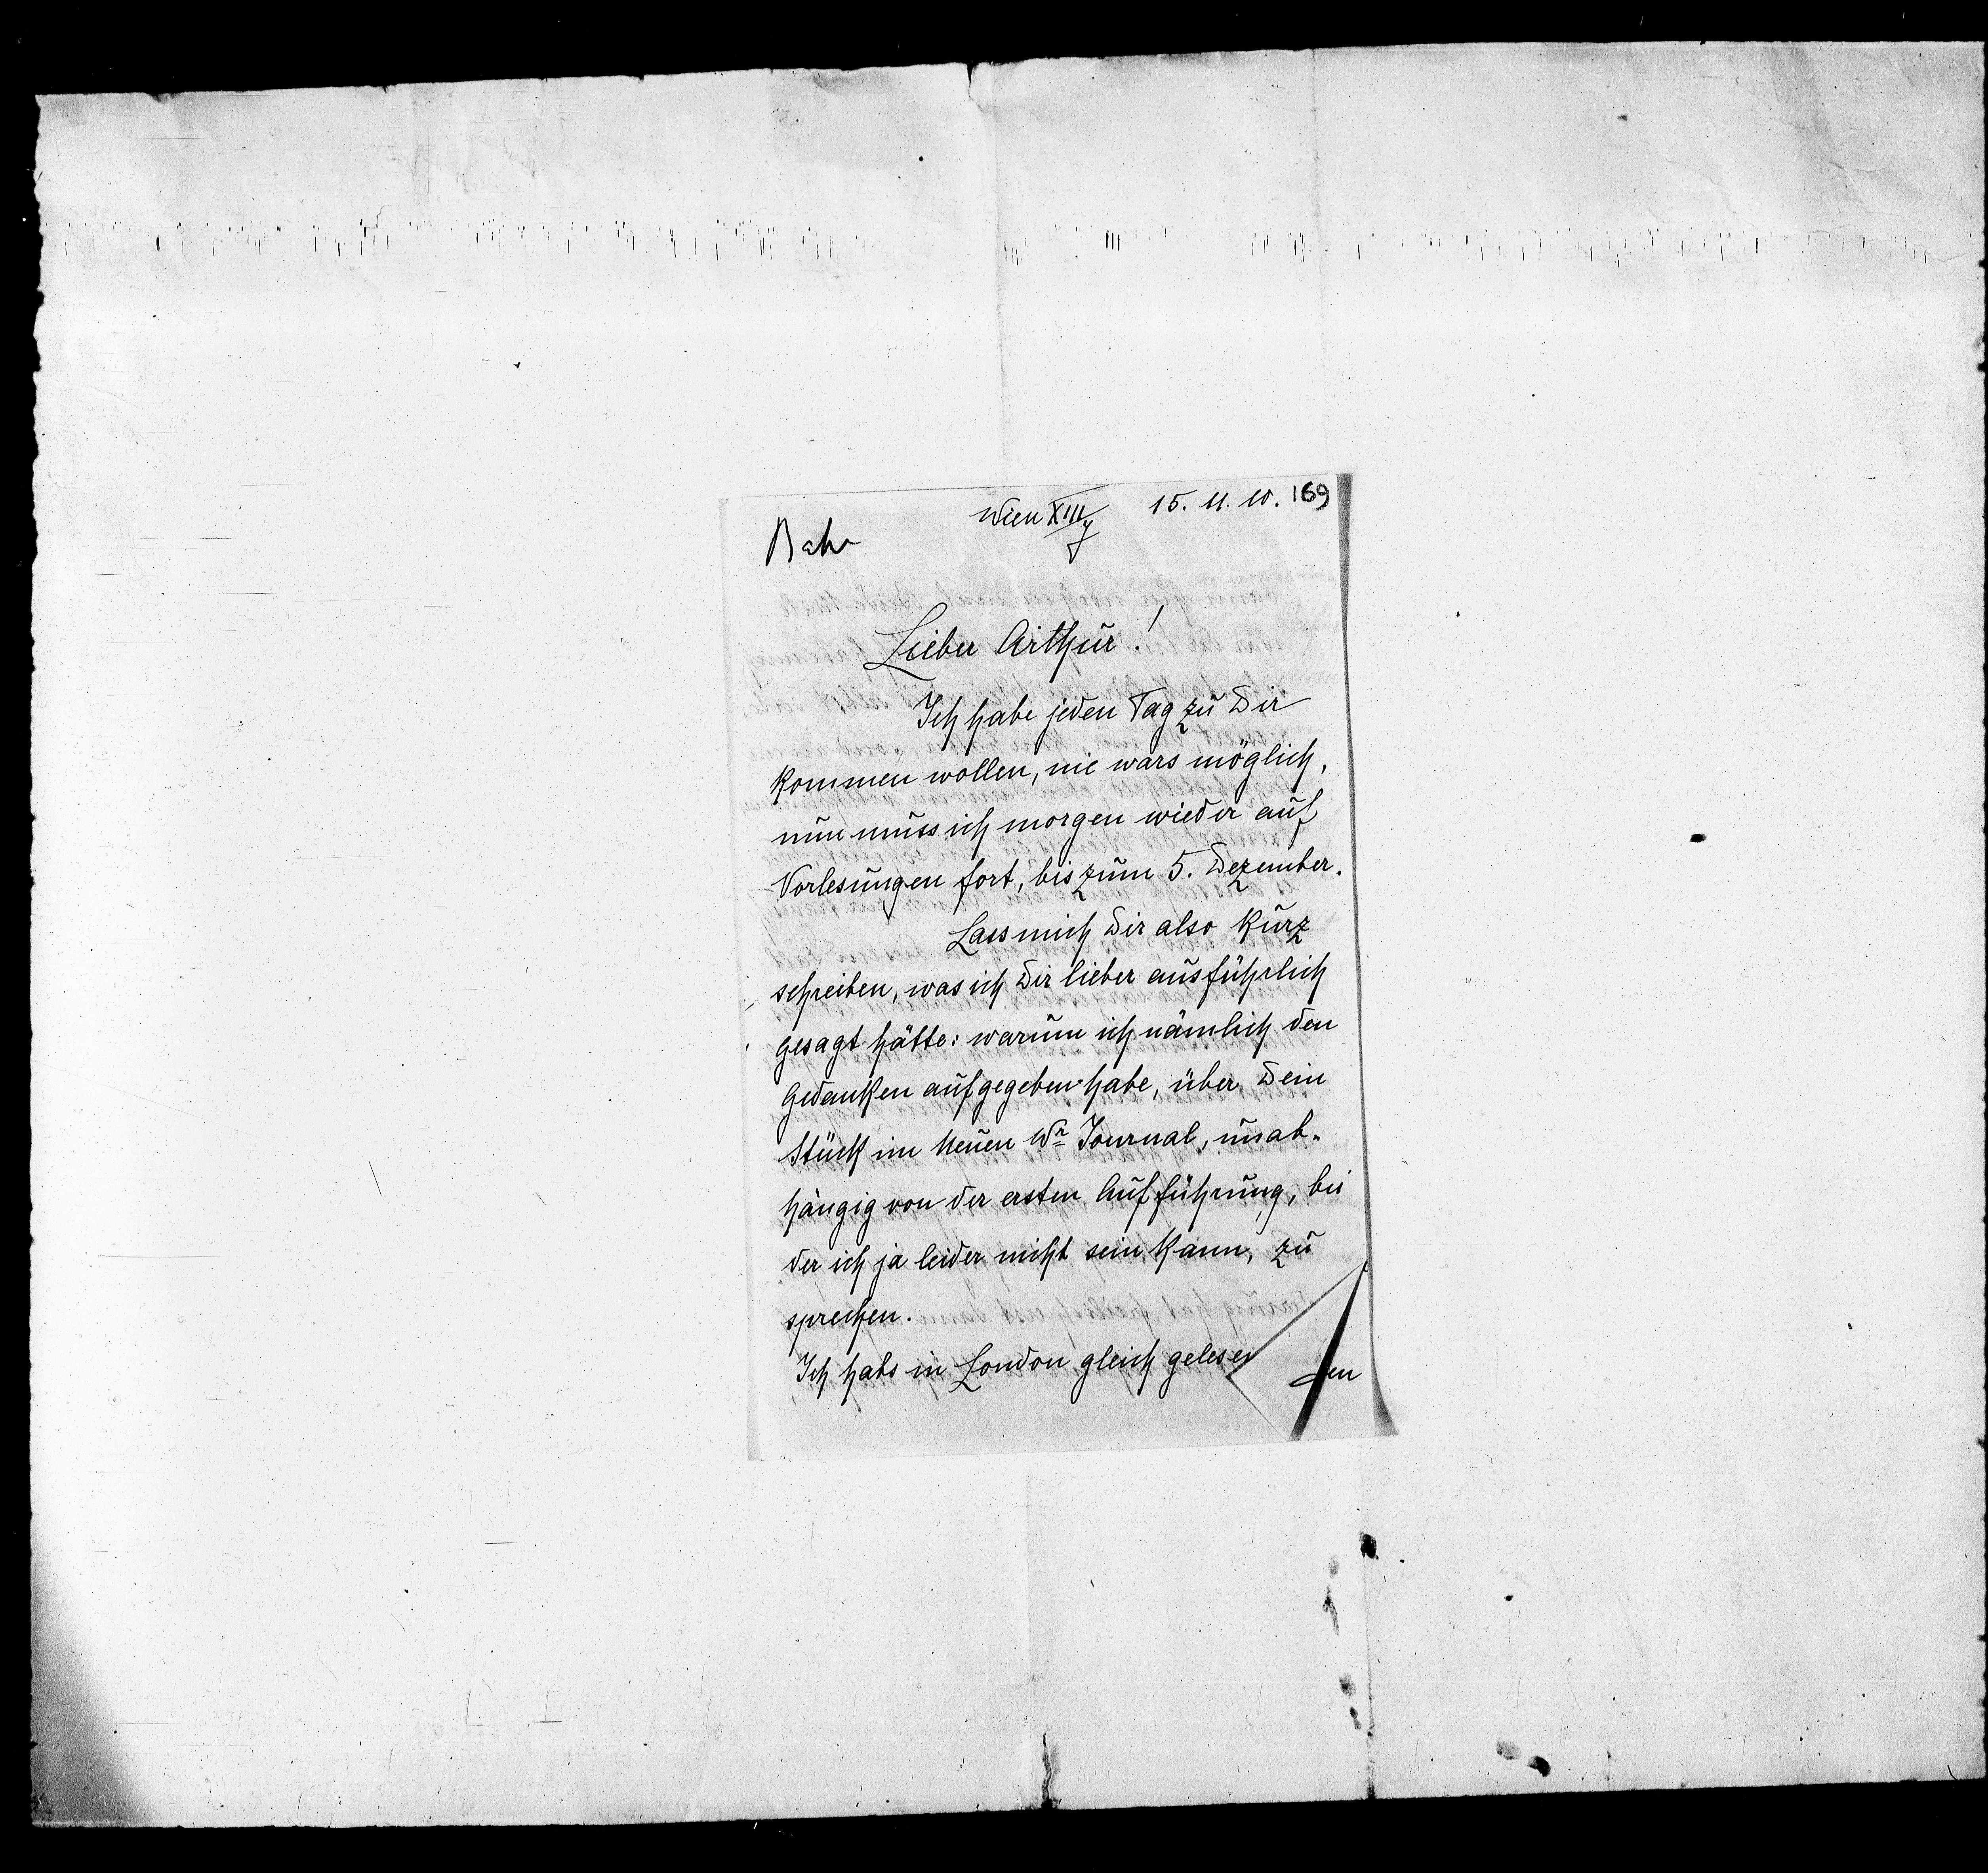 Wien XIII/7 15. 11. 10. 169
Bahr
Lieber Arthur!
Ich habe jeden Tag zu Dir
kommen wollen, nie wars möglich,
nun muss ich morgen wieder auf
Vorlesungen fort, bis zum 5. Dezember.
Lass mich Dir also kurz
schreiben, was ich Dir lieber ausführlich
gesagt hätte: warum ich nämlich den
Gedanken aufgegeben habe, über Dein
Stück im Neuen Wr Journal, unab-
hängig von der ersten Aufführung, bei
der ich ja leider nicht sein kann, zu
sprechen.
Ich habs in London gleich gelesen